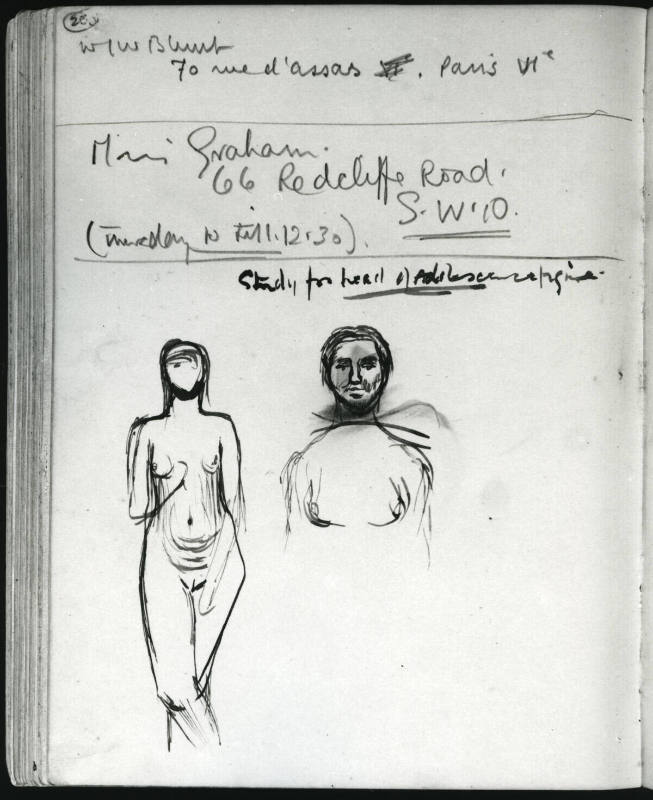 W J W Blunt
70 rue d'assas . Paris VIe
Miss Graham.
66 Redcliffe Road.
S.W.10.
(Thursday 10 till 12.30).
Study for head of Adolescence